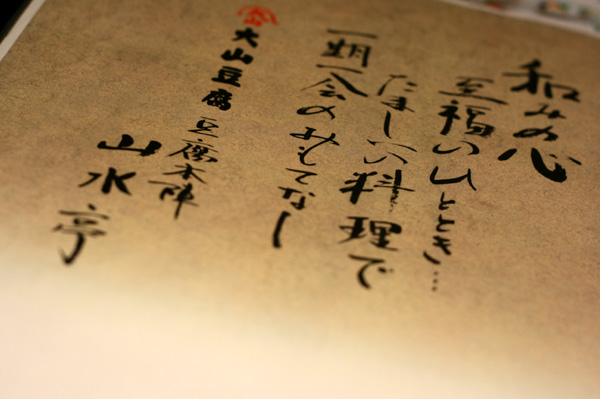 和みの心
至福のひととき…
たましい料理で
一期一会のおもてなし
大山豆腐
豆腐本陣
山水亭